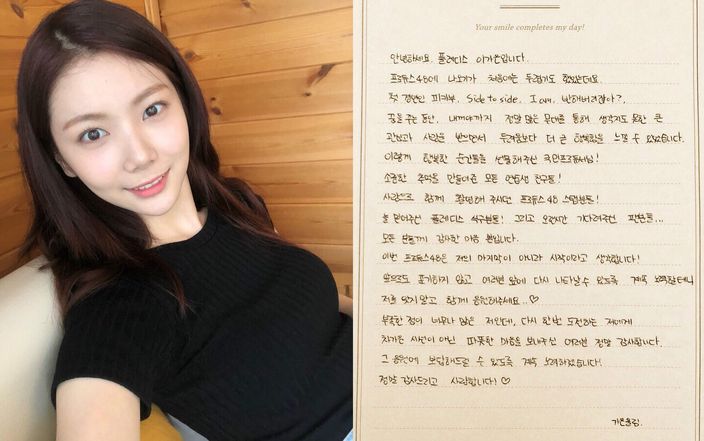 Your smile completes my day!
안녕하세요. 플레디스 이가은입니다.
프로듀스48에 나오기가 처음에는 두렵기도 했었는데요.
첫 경연인 피카부, Side to side, I am, 반해버리잖아?,
꿈을 꾸는 동안, 내꺼야까지 정말 많은 무대를 통해 생각지도 못한 큰
관심과 사랑을 받으면서 두려움보다 더 큰 행복함을 느낄 수 있었습니다.
이렇게 행복한 순간들을 선물해주신 국민프로듀서님!
소중한 추억을 만들어준 모든 연습생 친구들!
사랑으로 함께 촬영해 주시던 프로듀스 48 스텝분들!
늘 믿어주신 플레디스 식구분들! 그리고 오랜시간 기다려주신 팬분들...
모든 분들께 감사한 마음 뿐입니다.
이번 프로듀스48은 저의 마지막이 아니라 시작이라고 생각합니다!
앞으로도 포기하지 않고 여러분 앞에 다시 나타날 수 있도록 계속 노력할테니
저를 잊지 말고 함께 응원해주세요..♡
부족한 점이 너무나 많은 저인데, 다시 한번 도전하는 저에게
차가운 시선이 아닌 따뜻한 마음을 보내주신 여러분 정말 감사합니다.
그 응원에 보답해드릴 수 있도록 계속 노력하겠습니다!
정말 감사드리고 사랑합니다! ♡
가은올림.